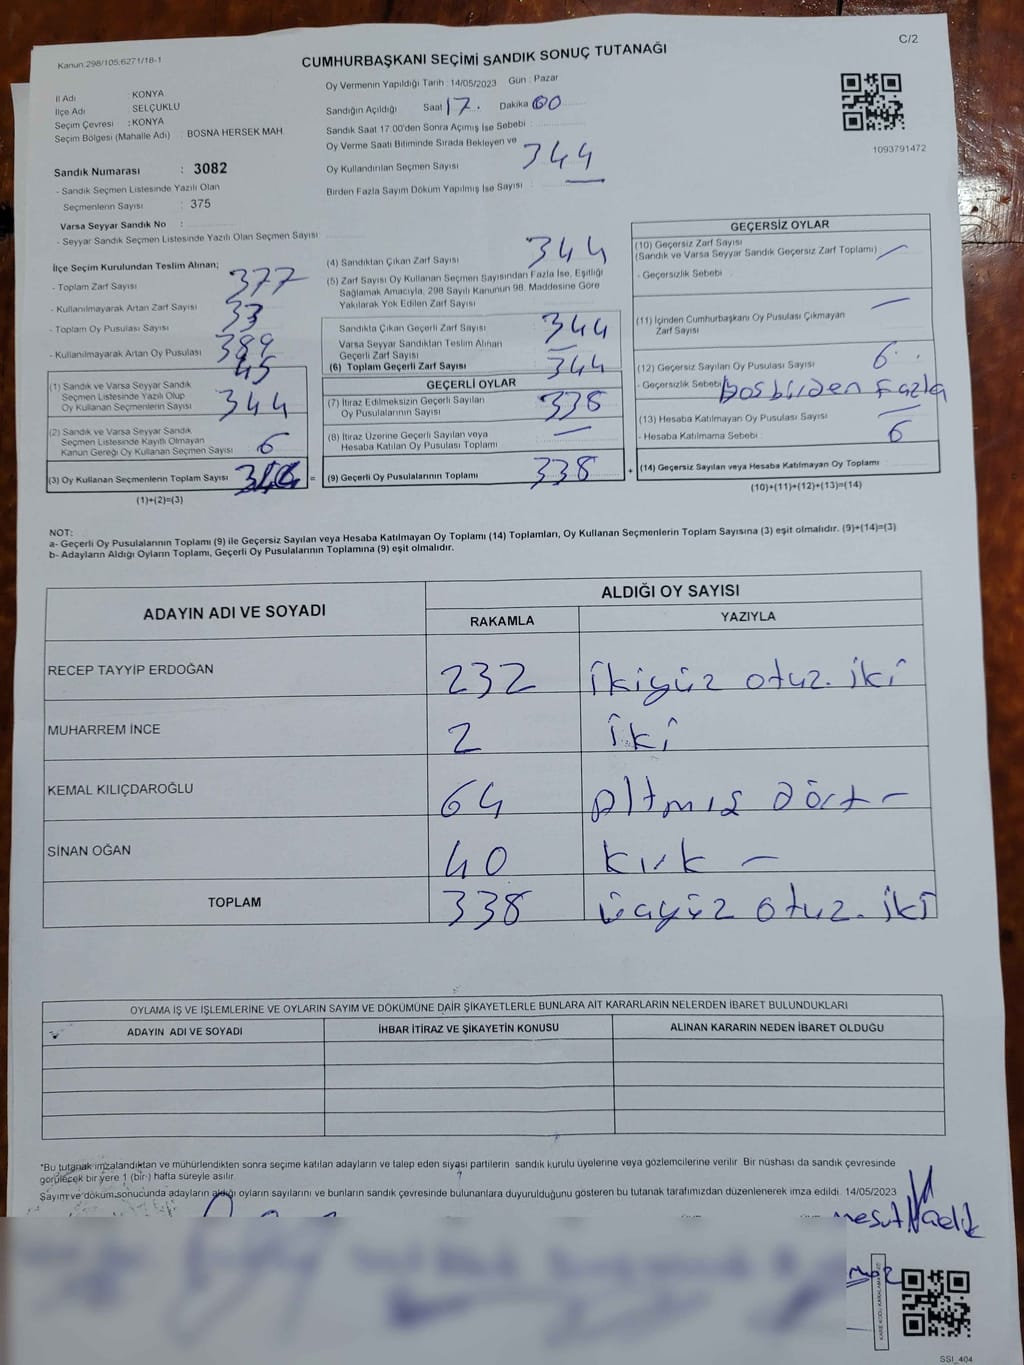 C/2
Kanun:298/105,6271/18-1
CUMHURBAŞKANI SEÇİMİ SANDIK SONUÇ TUTANAĞI
İl Adı : KONYA
İlçe Adı : SELÇUKLU
Seçim Çevresi : KONYA
Seçim Bölgesi (Mahalle Adı) : BOSNA HERSEK MAH.
Sandık Numarası : 3082
- Sandık Seçmen Listesinde Yazılı Olan
Seçmenlerin Sayısı : 375
Varsa Seyyar Sandık No :
- Seyyar Sandık Seçmen Listesinde Yazılı Olan Seçmen Sayısı :
Oy Vermenin Yapıldığı Tarih : 14/05/2023 Gün : Pazar
Sandığın Açıldığı Saat 17. Dakika 00
Sandık Saat 17.00'den Sonra Açımış İse Sebebi :
Oy Verme Saati Bitiminde Sırada Bekleyen ve
Oy Kullandırılan Seçmen Sayısı : 344
Birden Fazla Sayım Döküm Yapılmış İse Sayısı :
1093791472
İlçe Seçim Kurulundan Teslim Alınan;
- Toplam Zarf Sayısı : 377
- Kullanılmayarak Artan Zarf Sayısı : 33
- Toplam Oy Pusulası Sayısı : 389
- Kullanılmayarak Artan Oy Pusulası : 45
(1) Sandık ve Varsa Seyyar Sandık
Seçmen Listesinde Yazılı Olup
Oy Kullanan Seçmenlerin Sayısı : 344
(2) Sandık ve Varsa Seyyar Sandık
Seçmen Listesinde Kayıtlı Olmayan
Kanun Gereği Oy Kullanan Seçmen Sayısı : 6
(3) Oy Kullanan Seçmenlerin Toplam Sayısı :
(1)+(2)=(3)
(4) Sandıktan Çıkan Zarf Sayısı : 344
(5) Zarf Sayısı Oy Kullanan Seçmen Sayısından Fazla İse, Eşitliği
Sağlamak Amacıyla, 298 Sayılı Kanunun 98. Maddesine Göre
Yakılarak Yok Edilen Zarf Sayısı :
Sandıkta Çıkan Geçerli Zarf Sayısı : 344
Varsa Seyyar Sandıktan Teslim Alınan
Geçerli Zarf Sayısı : —
(6) Toplam Geçerli Zarf Sayısı : 344
GEÇERLİ OYLAR
(7) İtiraz Edilmeksizin Geçerli Sayılan
Oy Pusulalarının Sayısı : 338
(8) İtiraz Üzerine Geçerli Sayılan veya
Hesaba Katılan Oy Pusulaları Toplamı : —
= (9) Geçerli Oy Pusulalarının Toplamı : 338
GEÇERSİZ OYLAR
(10) Geçersiz Zarf Sayısı
(Sandık ve Varsa Seyyar Sandık Geçersiz Zarf Toplamı) : —
- Geçersizlik Sebebi :
(11) İçinden Cumhurbaşkanı Oy Pusulası Çıkmayan
Zarf Sayısı : —
(12) Geçersiz Sayılan Oy Pusulası Sayısı : 6
- Geçersizlik Sebebi : Fazla
(13) Hesaba Katılmayan Oy Pusulası Sayısı : —
- Hesaba Katılmama Sebebi : 6
+ (14) Geçersiz Sayılan veya Hesaba Katılmayan Oy Toplamı :
(10)+(11)+(12)+(13)=(14)
NOT:
a- Geçerli Oy Pusulalarının Toplamı (9) ile Geçersiz Sayılan veya Hesaba Katılmayan Oy Toplamı (14) Toplamları, Oy Kullanan Seçmenlerin Toplam Sayısına (3) eşit olmalıdır. (9)+(14)=(3)
b- Adayların Aldığı Oyların Toplamı, Geçerli Oy Pusulalarının Toplamına (9) eşit olmalıdır.
ADAYIN ADI VE SOYADI
ALDIĞI OY SAYISI
RAKAMLA YAZIYLA
RECEP TAYYİP ERDOĞAN 232 ikiyüz otuz. iki
MUHARREM İNCE 2 iki
KEMAL KILIÇDAROĞLU 64 Altmış dört -
SİNAN OĞAN 40 kırk -
TOPLAM 338 üçyüz otuz. iki
OYLAMA İŞ VE İŞLEMLERİNE VE OYLARIN SAYIM VE DÖKÜMÜNE DAİR ŞİKAYETLERLE BUNLARA AİT KARARLARIN NELERDEN İBARET BULUNDUKLARI
ADAYIN ADI VE SOYADI İHBAR İTİRAZ VE ŞİKAYETİN KONUSU ALINAN KARARIN NEDEN İBARET OLDUĞU
*Bu tutanak imzalandıktan ve mühürlendikten sonra seçime katılan adayların ve talep eden siyasi partilerin sandık kurulu üyelerine veya gözlemcilerine verilir. Bir nüshası da sandık çevresinde
görülecek bir yere 1 (bir) hafta süreyle asılır.
Sayım ve döküm sonucunda adayların aldığı oyların sayılarını ve bunların sandık çevresinde bulunanlara duyurulduğunu gösteren bu tutanak tarafımızdan düzenlenerek imza edildi. 14/05/2023
mesut
SSI_404